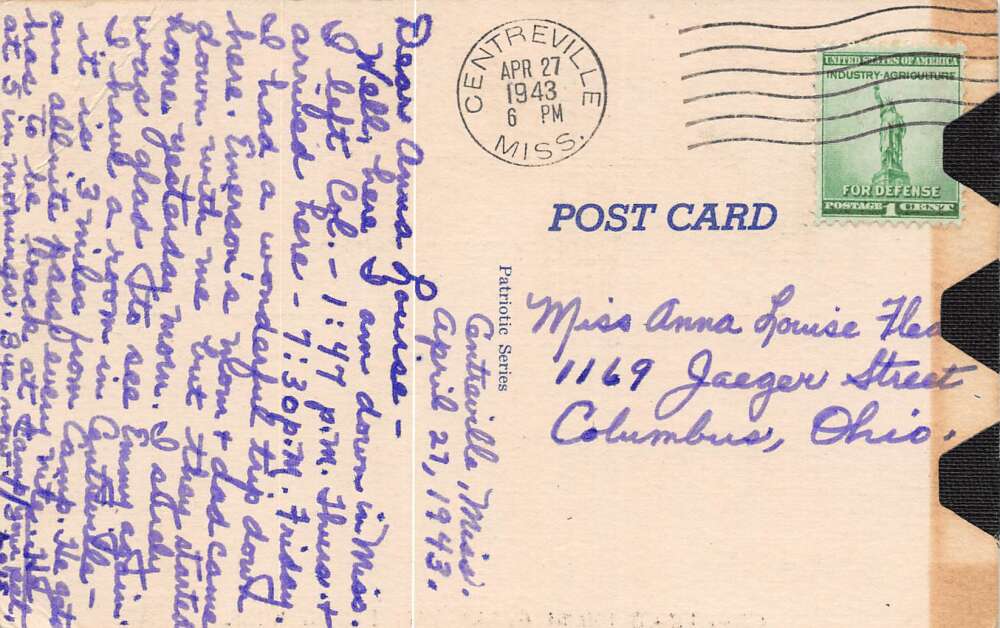 CENTREVILLE
APR 27
1943
6 PM
MISS.
UNITED STATES OF AMERICA
INDUSTRY-AGRICULTURE
FOR DEFENSE
POSTAGE 1 CENT
POST CARD
Patriotic Series
Miss Anna Louise
1169 Jaeger Street
Columbus, Ohio.
Centreville, Miss.
April 27, 1943.
Dear Anna Louise—
Well, here I am down in Miss.
I left Col.- 1:47 P.M. Thurs. &
arrived here - 7:30 P.M. Friday.
I had a wonderful trip down
here. Emerson's Mom & dad came
down with me but they started
home yesterday morn. I sturely
was glad to see Emmy again.
I have a room in Centreville-
it is 3 miles from Camp. He gets
in allnite pass every nite but
has to be back at Camp
at 5 in mornings. Bye now